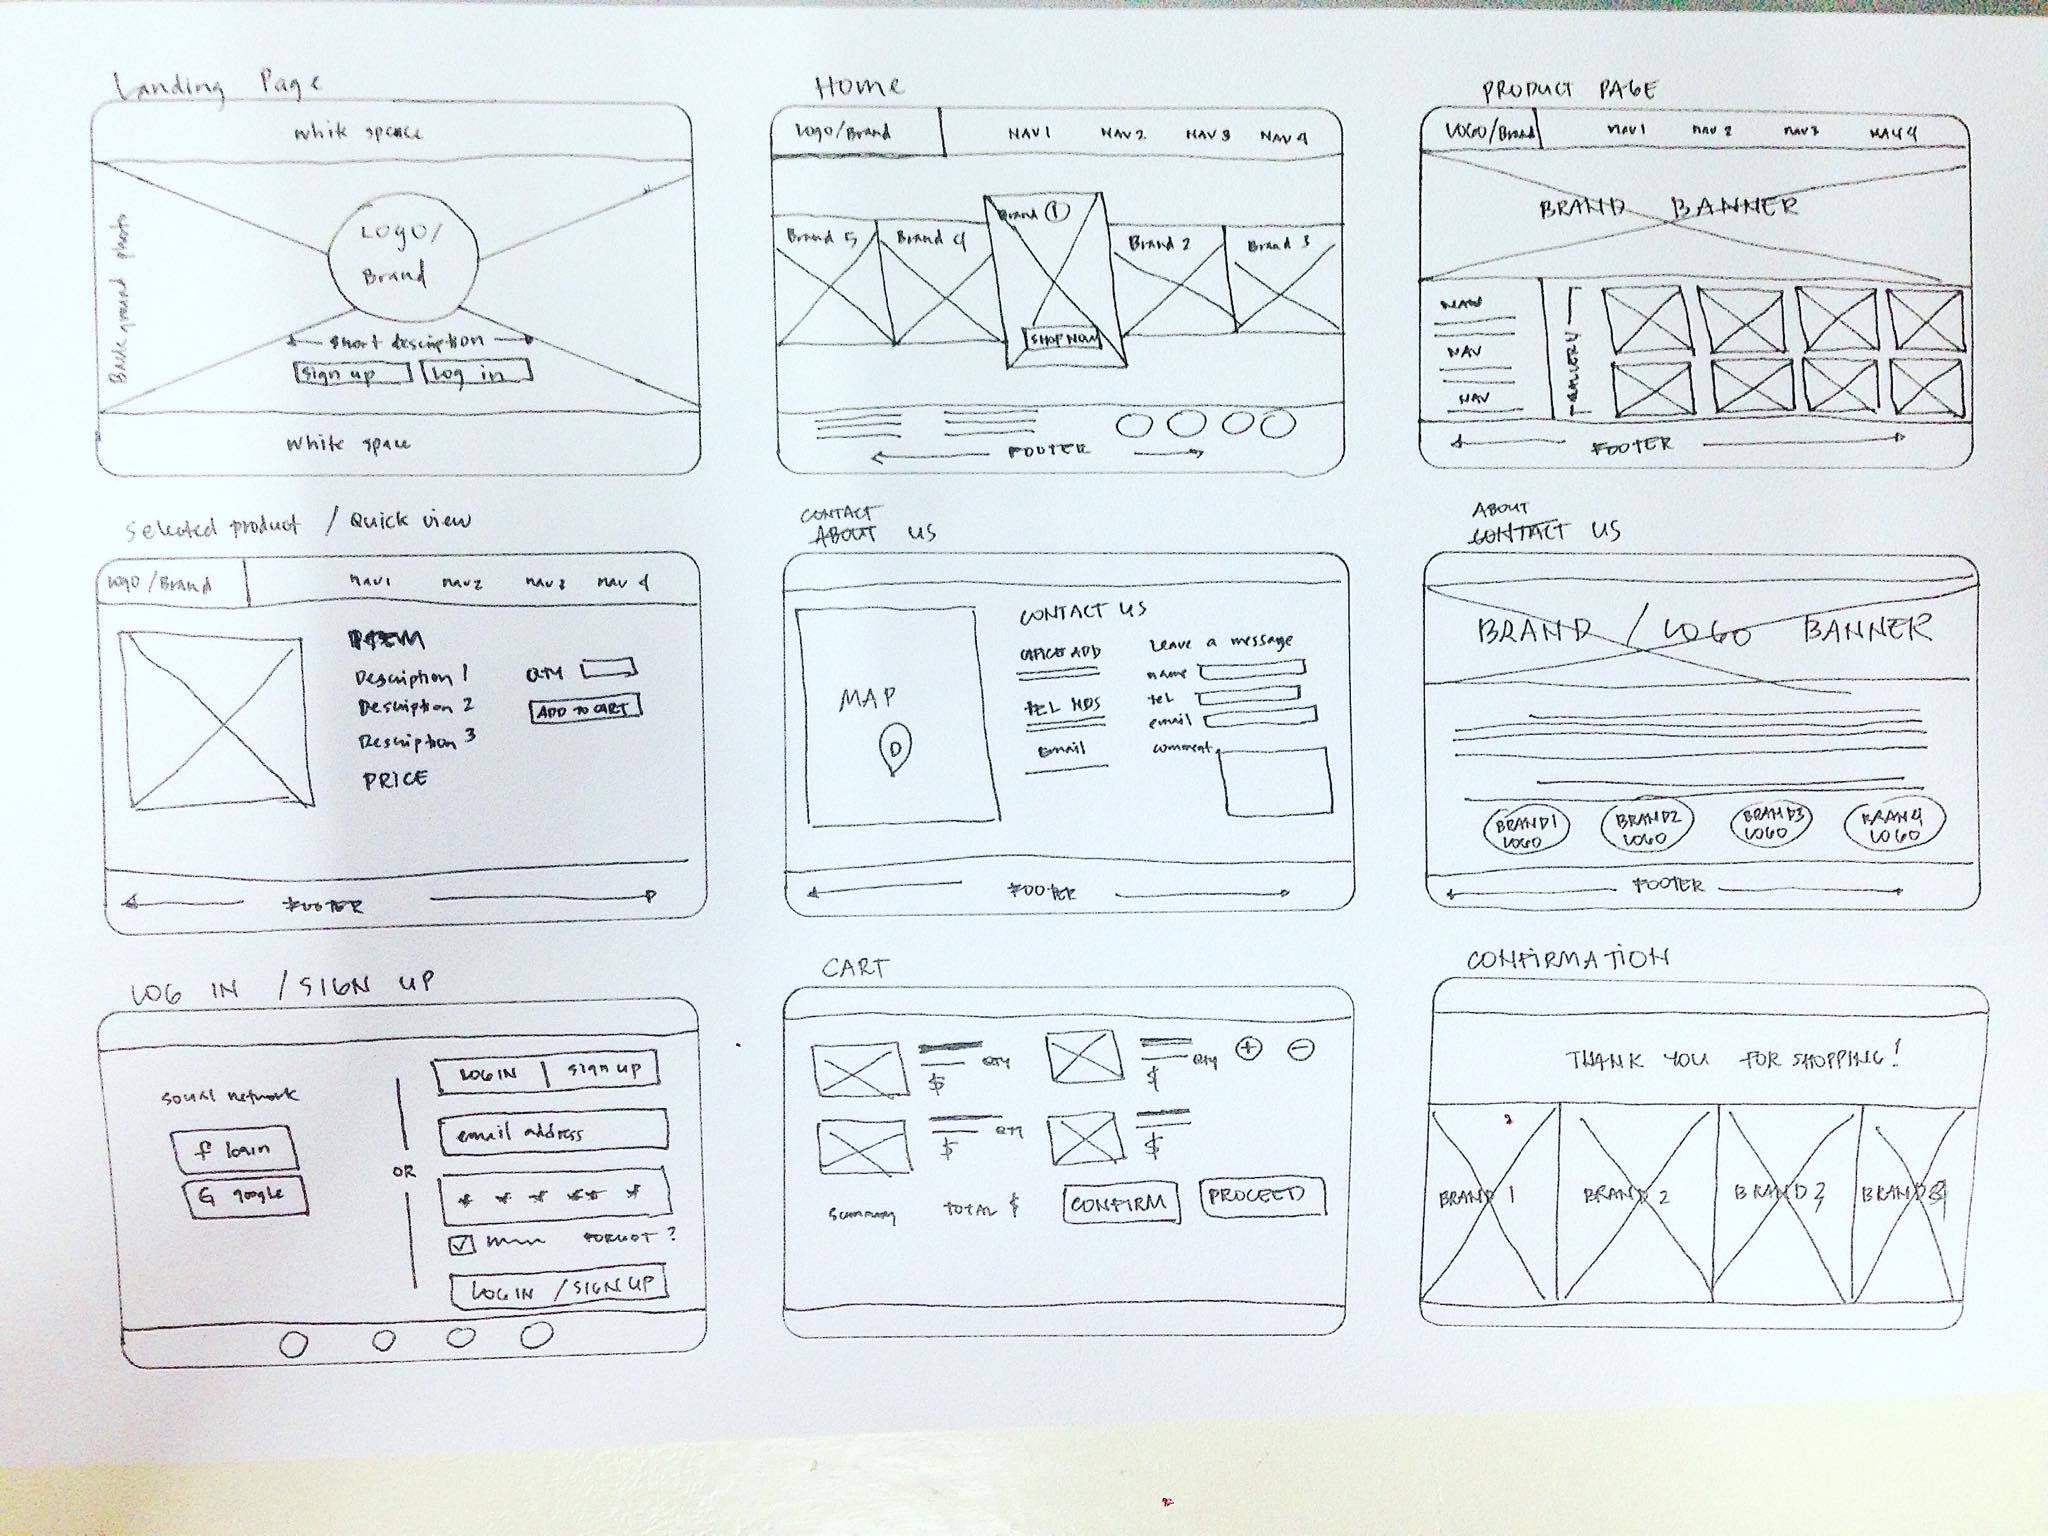 Landing Page
White space
Background photo
Logo/
Brand
short description
sign up
Log in
White space
Home
Logo/Brand
NAV 1
NAV 2
NAV 3
NAV 4
Brand 5
Brand 4
Brand 1
Brand 2
Brand 3
SHOP NOW
FOOTER
PRODUCT PAGE
LOGO/Brand
NAV 1
NAV 2
NAV 3
NAV 4
BRAND BANNER
NAV
NAV
NAV
GALLERY
FOOTER
Selected product / Quick view
Logo/Brand
NAV 1
NAV 2
NAV 3
NAV 4
ITEM
Description 1
Description 2
Description 3
PRICE
QTY
ADD TO CART
FOOTER
CONTACT
ABOUT US
MAP
CONTACT US
OFFICE ADD
TEL NOS
Email
Leave a message
name
tel
email
comment
FOOTER
ABOUT
CONTACT US
BRAND / LOGO BANNER
BRAND 1
LOGO
BRAND 2
LOGO
BRAND 3
LOGO
BRAND 4
LOGO
FOOTER
LOG IN / SIGN UP
social network
f login
G google
OR
LOG IN
sign up
email address
* * * * * *
FORGOT?
LOG IN / SIGN UP
CART
QTY
$
QTY
$
+
-
QTY
$
$
summary
TOTAL $
CONFIRM
PROCEED
CONFIRMATION
THANK YOU FOR SHOPPING!
BRAND 1
BRAND 2
BRAND 3